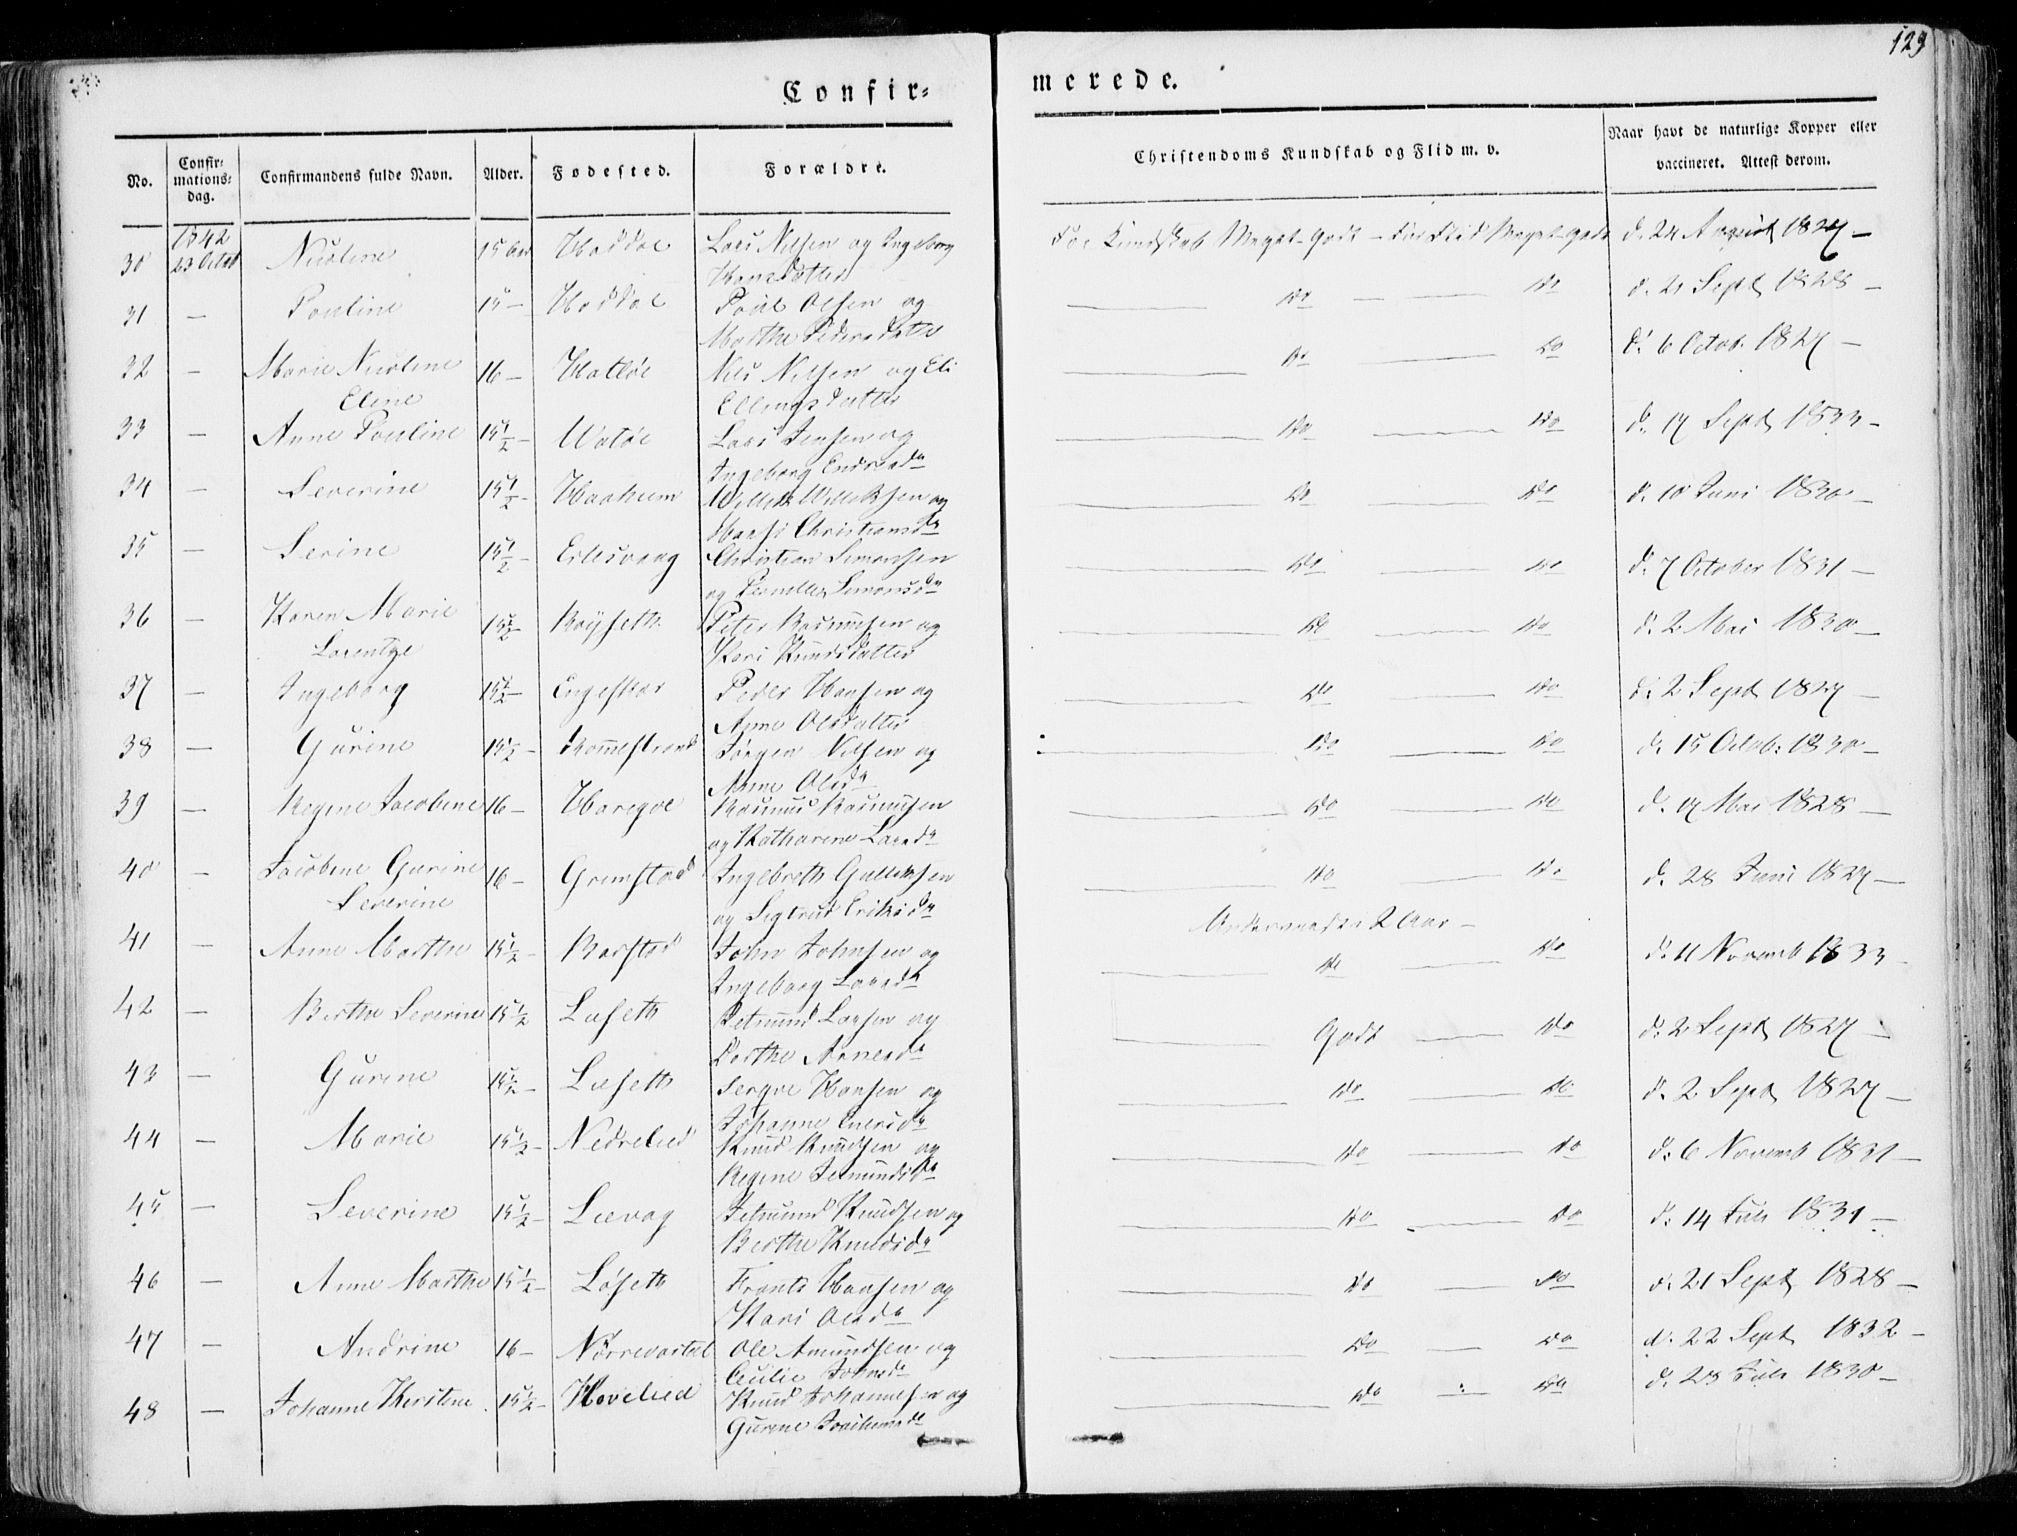 129
Confir=
merede.
No.
Confir=
mations=
dag.
Confirmandens fulde Navn.
Alder.
Fodested.
Forældre.
Christendoms Kundskab og Flid m. v.
Naar havt de naturlige Kopper eller
vaccineret. Attest derom.
30 1842 23 Octob Nicoline 15 Aar Haddal Lars Nilsen og Ingeborg For Kundskab Meget-Godt – For Flid Meget-godt d. 24 August 1827 –
Hansdatter
31 – Pouline 15 – Haddal Poul Olsen og do – do d. 21 Sept 1828 –
Marthe Pedersdatter
32 – Marie Nicoline 16 – Hatløe Nils Nilsen og Eli do do d. 6 Octob. 1827 –
Eline Ellingsdatter
33 – Anne Pouline 15 1/2 – Watøe Lars Jensen og do do d. 17 Sept 1833 –
Ingeborg Endresda
34 – Severine 15 1/2 – Haaheim Willik Williksen og do do d. 10 Juni 1830 –
Christiansda
35 – Serine 15 1/2 – Eilesvaag Christian Simonsen do do d. 7 October 1831 –
og Pernelle Simonsda
36 – Karen Marie 15 1/2 – Røyseth Peter Rasmusen og do do d. 2 Mai 1830 –
Lorentze Kari Knudsdatter
37 – Ingeborg 15 1/2 – Engeskar Peder Hansen og do do d. 2 Sept 1827 –
Anne Olsdatter
38 – Gurine 15 1/2 – Rømestrand Jørgen Nilsen og do do d. 15 Octob: 1830 –
Anne Olsda
39 – Regine Jacobine 16 – Haregoe Rasmus Rasmusen do do d. 17 Mai 1828 –
og Katharine Larsda
40 – Jacobine Gurine 16 – Grimstad Ingebreth Gulliksen do do d. 28 Juni 1827 –
Severine og Sigtrud Eriksda
2 Aar –
41 – Anne Marthe 15 1/2 – Barstad John Johnsen og do do d. 11 Novemb 1833
Ingeborg Larsda
42 – Berthe Severine 15 1/2 Liaseth Petmund Larsen og Godt do d. 2 Sept 1827 –
Dorthe Arnesda
43 – Gurine 15 1/2 – Liaseth Sergve Hansen og do do d. 2 Sept 1827 –
Johanne Iversda
44 – Marie 15 1/2 – Nedrelied Knud Knudsen og do do d. 6 Novemb 1831 –
Regine Jetmundsda
45 – Severine 15 1/2 – Lievag Jetmund Knudsen og do do d. 14 Juli 1831 –
Berthe Knudsda
46 – Anne Marthe 15 1/2 – Løseth Frants Hansen og do do d. 21 Sept 1828 –
Kari Olsda
47 – Andrine 16 – Nørrevartdal Ole Amundsen og do do d. 22 Sept 1832 –
Cecilie Johnsda
48 – Johanne Kirstine 15 1/2 – Hovelied Knud Johannesen og do do d. 28 Juli 1830 –
Gurine Joachimsda